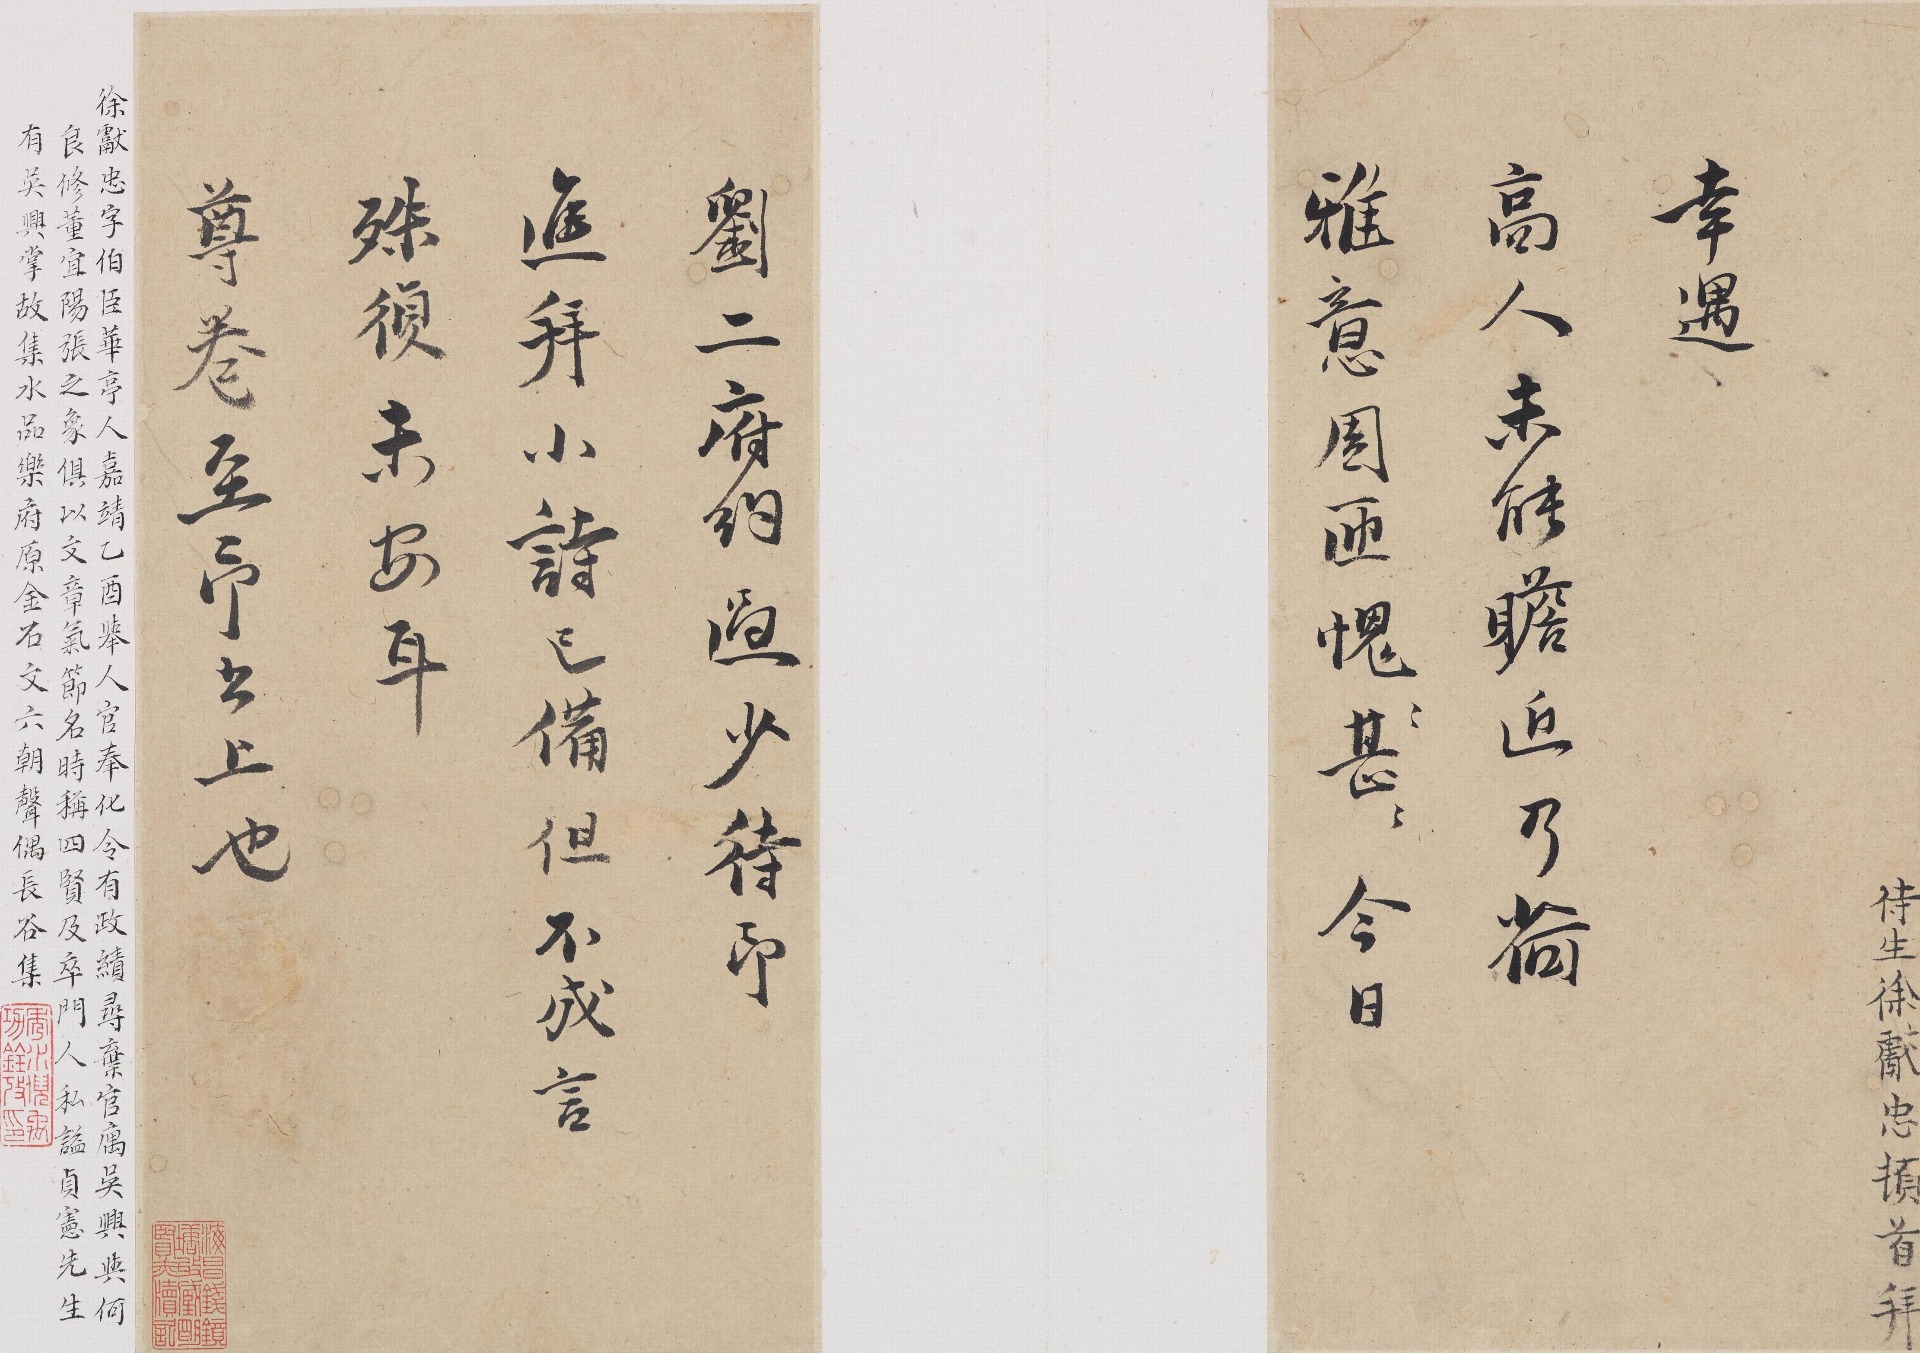 侍生徐獻忠頓首拜
幸遇
高人未能瞻近乃荷
雅意周匝愧甚〻今日
劉二府約過少待即
進拜小詩已備但不成言
殊損未安耳
尊卷至即書上也
徐獻忠字伯臣華亭人嘉靖乙酉舉人官奉化令有政績尋棄官寓吳興與何
良修董宜陽張之象俱以文章氣節名時稱四賢及卒門人私謚貞憲先生
有吳興掌故集水品樂府原金石文六朝聲偶長谷集
海昌錢鏡塘收藏明賢尺牘記